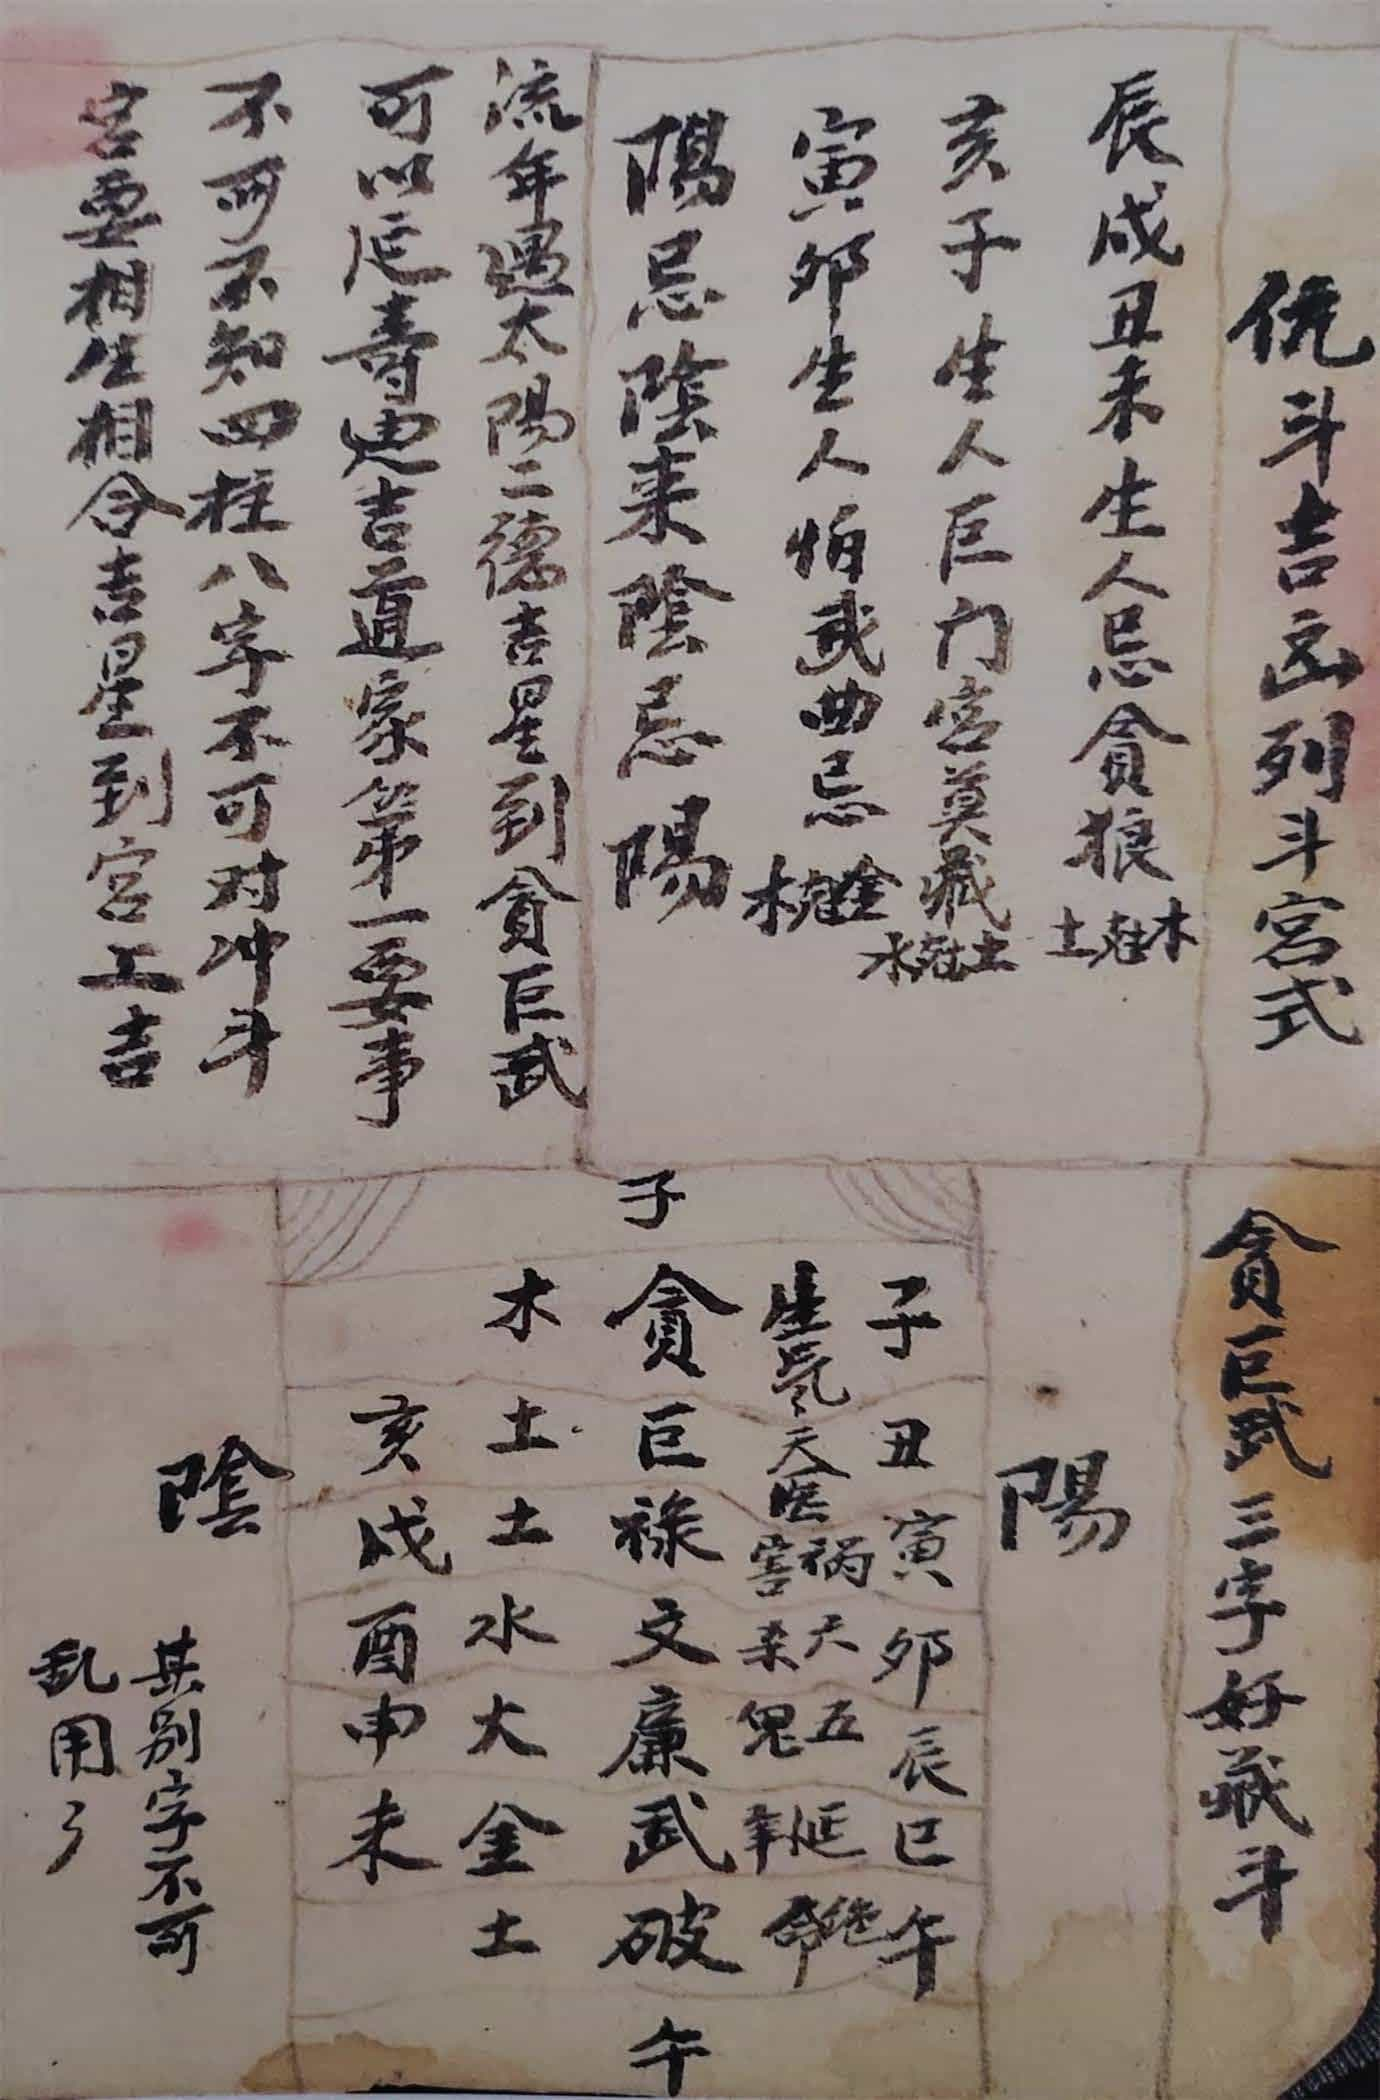 优斗吉凶列斗宫式
辰戌丑未生人忌貪狼
木尅土
亥子生人巨门宫莫藏
土尅水
寅卯生人怕武曲忌
金尅木
陽忌陰来陰忌陽
流年遇太陽二德吉星到貪巨武
可以延寿迎吉道家第一要事
不可不知四柱八字不可对冲斗
宫要相生相合吉星到宫上吉
貪巨武三字好藏斗
陽
子
子丑寅卯辰巳午
生氣天医禍害天杀五鬼延年絶命
貪巨祿文廉武破
木土土水火金土
亥戌酉申未
午
陰
其别字不可
乱用了